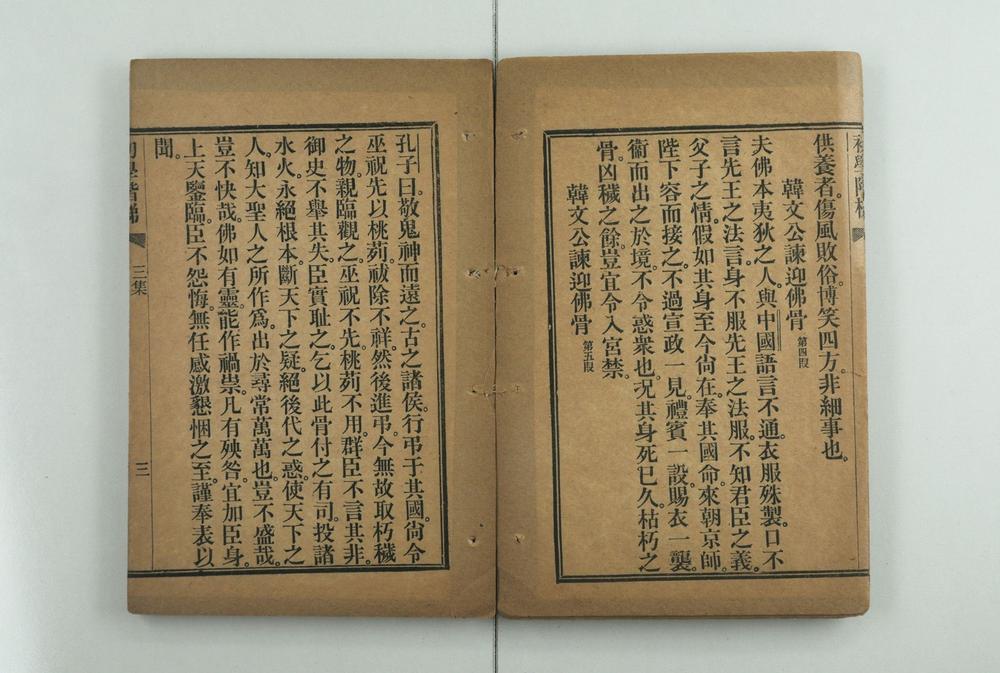 供養者。傷風敗俗。博笑四方。非細事也。
韓文公諫迎佛骨 第四叚
夫佛本夷狄之人。與中國語言不通。衣服殊製。口不
言先王之法言。身不服先王之法服。不知君臣之義。
父子之情。假如其身至今尙在。奉其國命。來朝京師。
陛下容而接之。不過宣政一見。禮賓一設。賜衣一襲。
衞而出之於境。不令惑衆也。况其身死已久。枯朽之
骨。凶穢之餘。豈宜令入宮禁。
韓文公諫迎佛骨 第五叚
孔子曰。敬鬼神而遠之。古之諸侯。行弔于其國。尙令
巫祝先以桃茢祓除不祥。然後進弔。今無故取朽穢
之物。親臨觀之。巫祝不先。桃茢不用。群臣不言其非。
御史不舉其失。臣實耻之。乞以此骨付之有司。投諸
水火。永絕根本。斷天下之疑。絕後代之惑。使天下之
人。知大聖人之所作爲。出於尋常萬萬也。豈不盛哉。
豈不快哉。佛如有靈。能作禍祟。凡有殃咎。宜加臣身。
上天鑒臨。臣不怨悔。無任感激懇悃之至。謹奉表以
聞。
初學階梯 三集 三